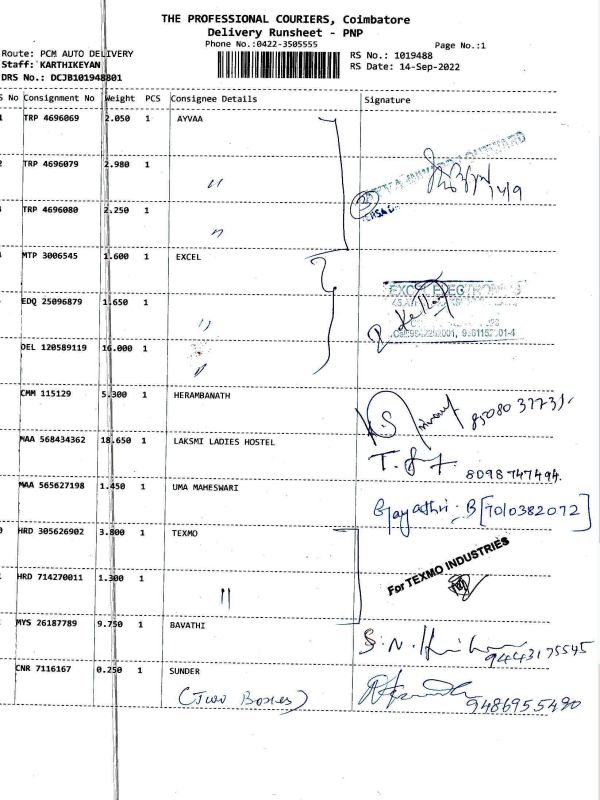 THE PROFESSIONAL COURIERS, Coimbatore
Delivery Runsheet - PNP
Phone No.:0422-3505555
Page No.:1
Route: PCM AUTO DELIVERY
Staff: KARTHIKEYAN
RS No.: 1019488
RS Date: 14-Sep-2022
DRS No.: DCJB101948801
S No Consignment No Weight PCS Consignee Details Signature
TRP 4696069 2.050 1 AYVAA
TRP 4696079 2.980 1 "
14/9
TRP 4696080 2.250 1 "
MTP 3006545 1.600 1 EXCEL
EXCEL ELECTRONICS
EDQ 25096879 1.650 1 "
DEL 120589119 16.000 1 "
CMM 115129 5.300 1 HERAMBANATH
MAA 568434362 18.650 1 LAKSMI LADIES HOSTEL
8098747494.
MAA 565627198 1.450 1 UMA MAHESWARI
Gayathri. B [7010382072]
HRD 305626902 3.800 1 TEXMO
For TEXMO INDUSTRIES
HRD 714270011 1.300 1 "
MYS 26187789 9.750 1 BAVATHI
9443175545
CNR 7116167 0.250 1 SUNDER
(Two Boxes)
9486955490